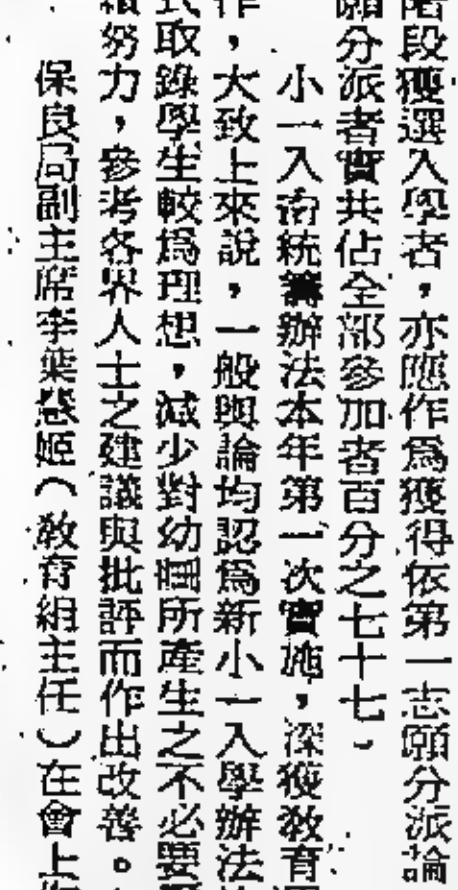 階段獲選入學者，亦應作為獲得依第一志願分派論
願分派者實共佔全部參加者百分之七十七。
小一入學統籌辦法本年第一次實施，深獲教育
作，大致上來說，一般輿論均認爲新小一入學辦法
式取錄學生較爲理想，減少對幼童所產生之不必要
積努力，參考各界人士之建議與批評而作出改善。
保良局副主席李葉慧姬（教育組主任）在會上